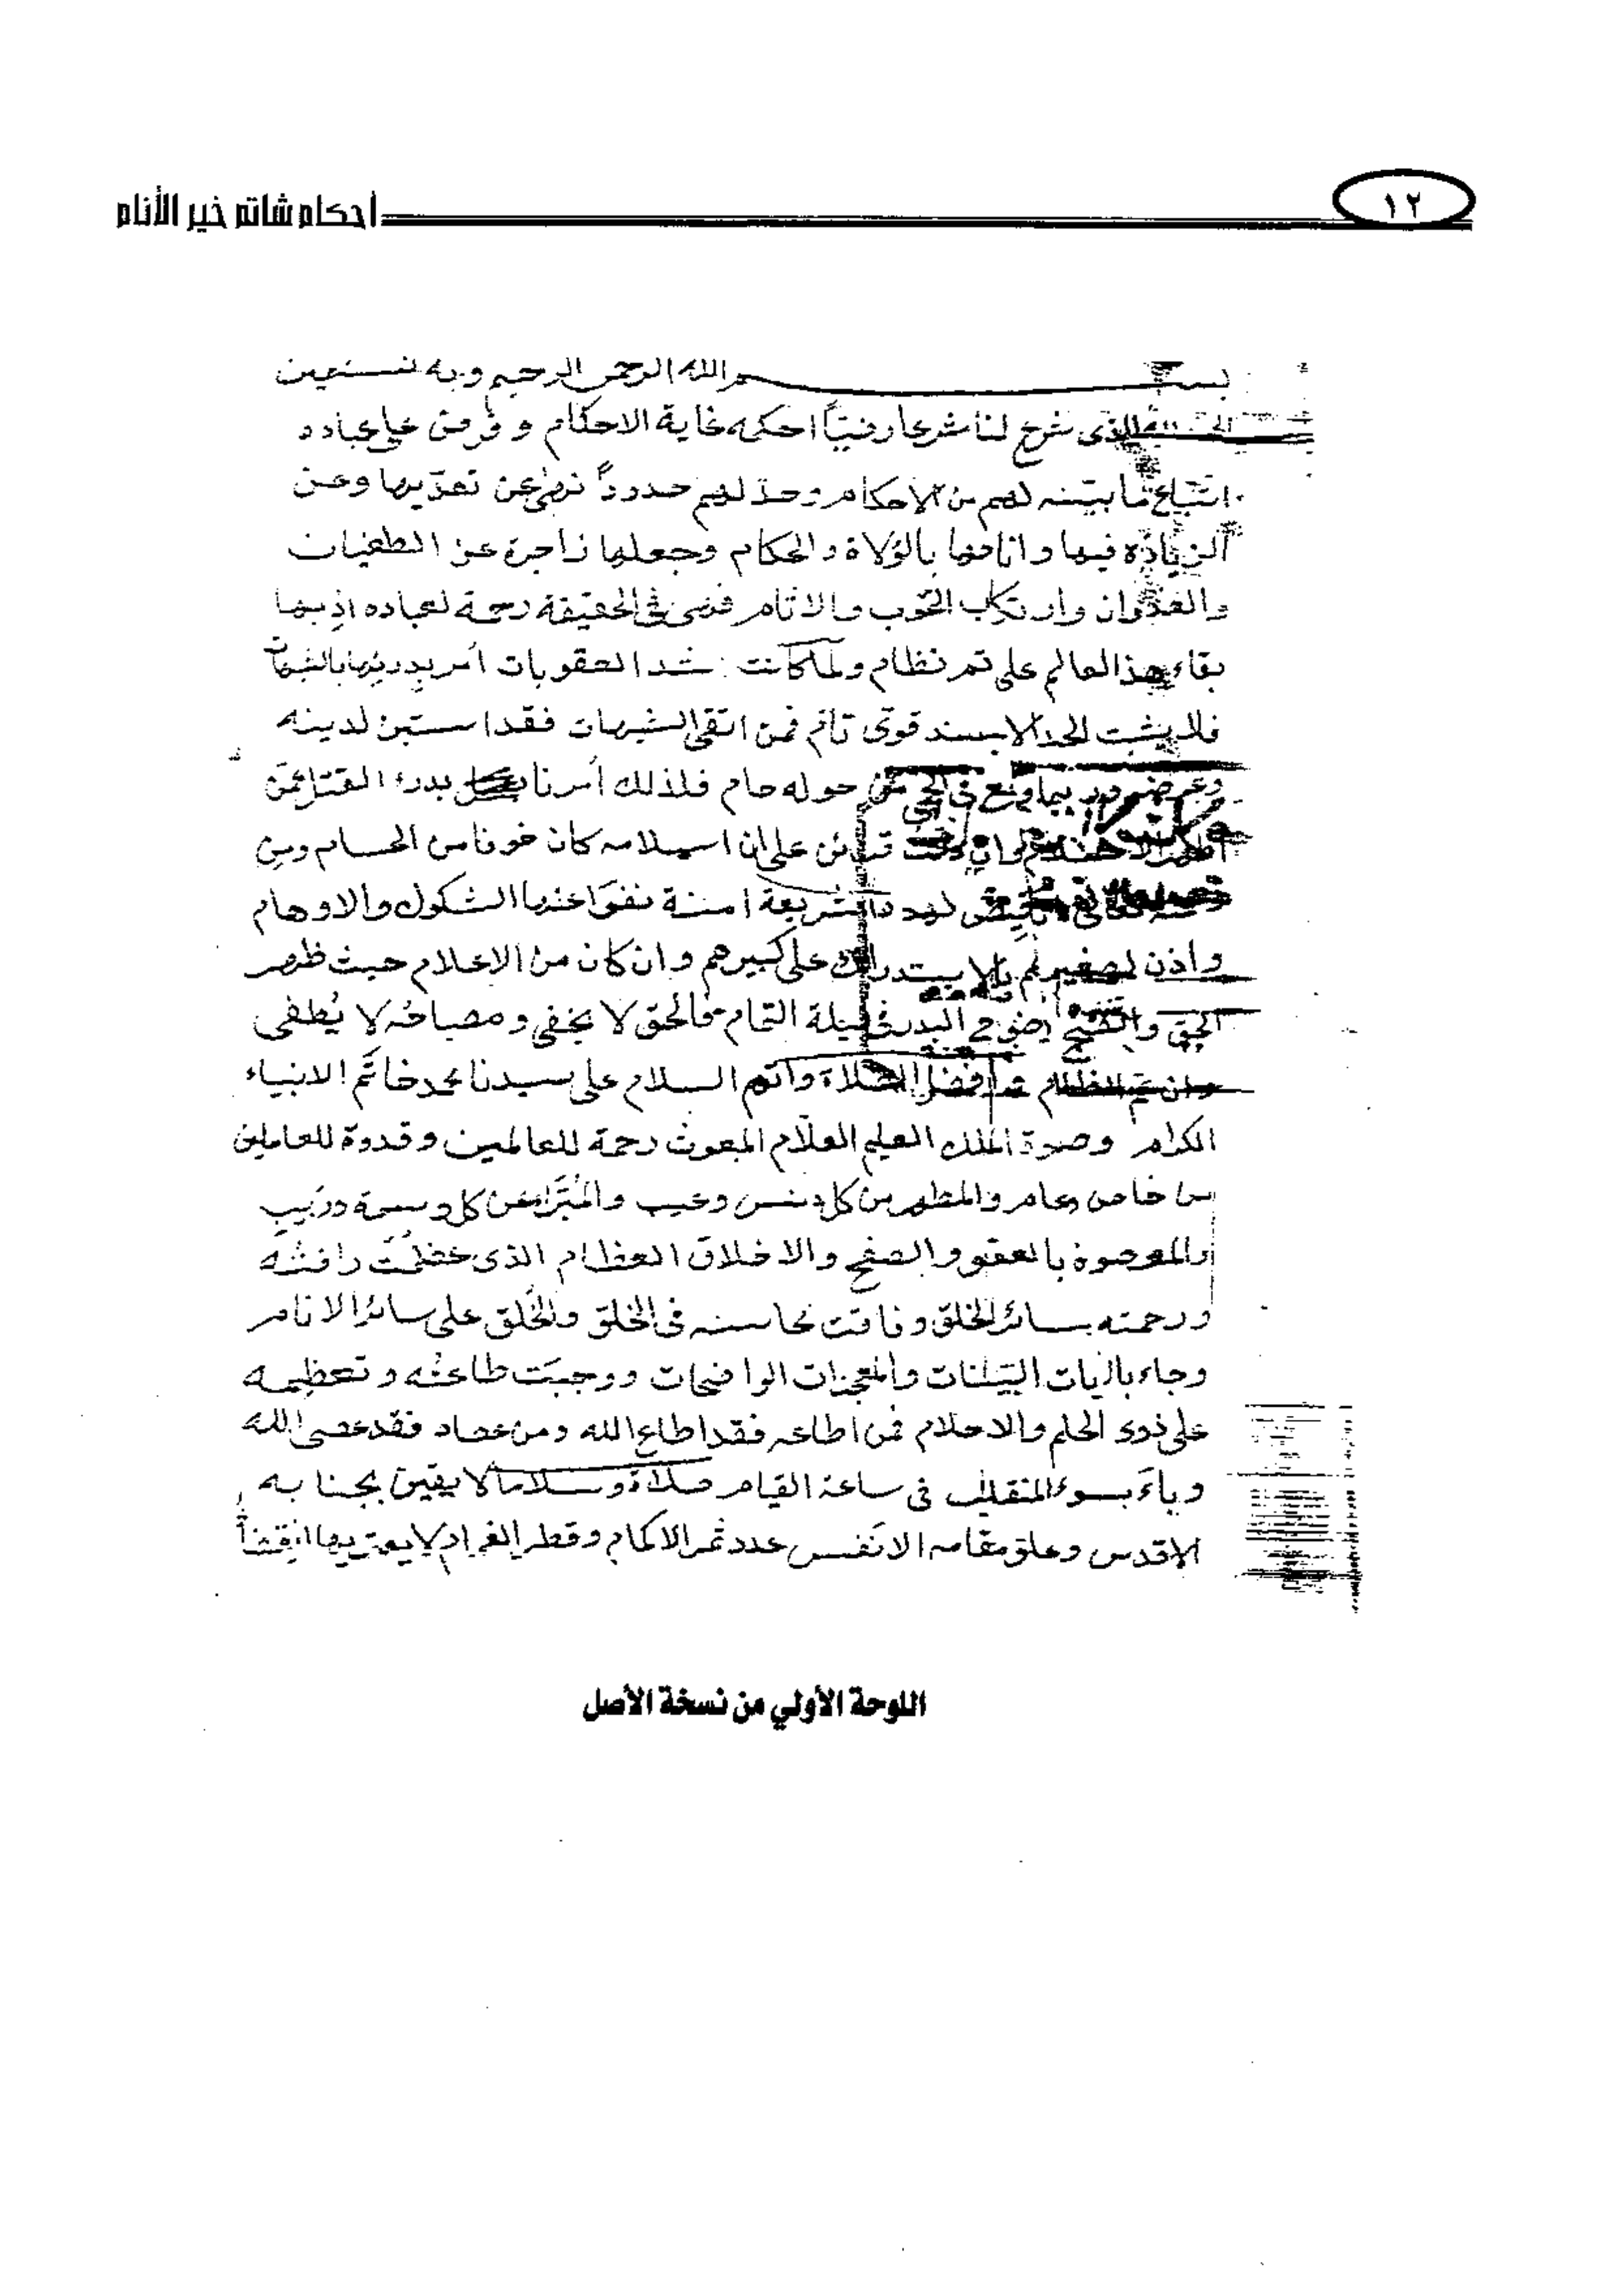 ١٢
أحكام شاتم خير الأنام
بسم الله الرحمن الرحيم وبه نستعين
الذى شرع لنا شرعا رضيًّا احكمه غاية الاحكام وفرض على عباده
اتباع ما بيّنه لهم من الاحكام وحدّ لهم حدودًا نهى عن تعدّيها وعن
الزيادة فيها واناطها بالوُلاة والحكام وجعلها زاجرة عن الطغيان
والعدوان وارتكاب الحُوب والاثام فهى فى الحقيقة رحمة لعباده اذ بها
بقاء هذا العالم على تم نظام ولما كانت اشد العقوبات أمر بدرئها بالشبهات
فلا يثبت الحد الا بسند قوىّ تام فمن اتقى الشبهات فقد استبرٔ لدينه
وعرضه حول حوله حام فلذلك أمرنا بدرء القتل عمّن
قرائن على ان اسلامه كان خوفا من الحسام ومن
الشريعة امنة نفوا عنها الشكوك والاوهام
واذن لصغيرهم بالاستدراك على كبيرهم وان كان من الاعلام حيث ظهر
الحق واتضح وضوح البدر فى ليلة التمام فالحق لا يخفى ومصباحُه لا يُطفى
افضل الصلاة واتم السلام على سيدنا محمد خاتَم الانبياء
الكرام وصفوة الملك العليم العلّام المبعوث رحمة للعالمين وقدوة للعاملين
من خاص وعام والمطهر من كل دنس وعيب والمُبَرَّا عن كل وصمة ورَيب
والموصوف بالعفو والصفح والاخلاق العظام الذى عمّت رافته
ورحمته سائر الخلق وفاقت محاسنه فى الخلق والخُلق على سائر الانام
وجاء بالايات البيّنات والمعجزات الواضحات ووجبَت طاعتُه وتعظيمه
على ذوى الحلم والاحلام فمن اطاعه فقد اطاع الله ومن عصاه فقد عصى الله
وباءَ بسوء المنقلب فى ساعة القيام صلاة وسلاما لايقين بجنابه
الاقدس وعلو مقامه الانَفس عدد ثمر الاكمام وقطر الغمام لا يعتريها انقضاء
اللوحة الأولي من نسخة الأصل